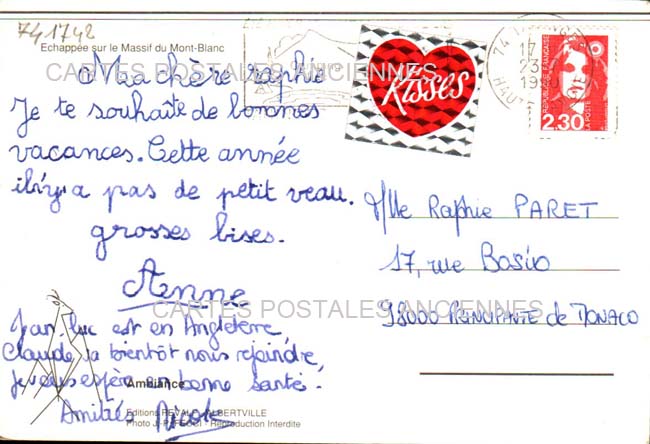 741742
Echappée sur le Massif du Mont-Blanc
CARTES POSTALES ANCIENNES
Ma chère raphie
Je te souhaite de bonnes
vacances. Cette année
il n'y a pas de petit veau.
grosses bises.
Anne
Jean-luc est en Angleterre,
Claude va bientôt nous rejoindre,
Je vous espère en bonne santé.
Amitiés Nicole
Kisses
17
23
REPUBLIQUE FRANÇAISE
2,30
LA POSTE
Mlle Raphie PARET
17, rue Bosio
98000 PRINCIPAUTE de MONACO
CARTES POSTALES ANCIENNES
Ambiance
Editions ALBERTVILLE
Photo Reproduction Interdite